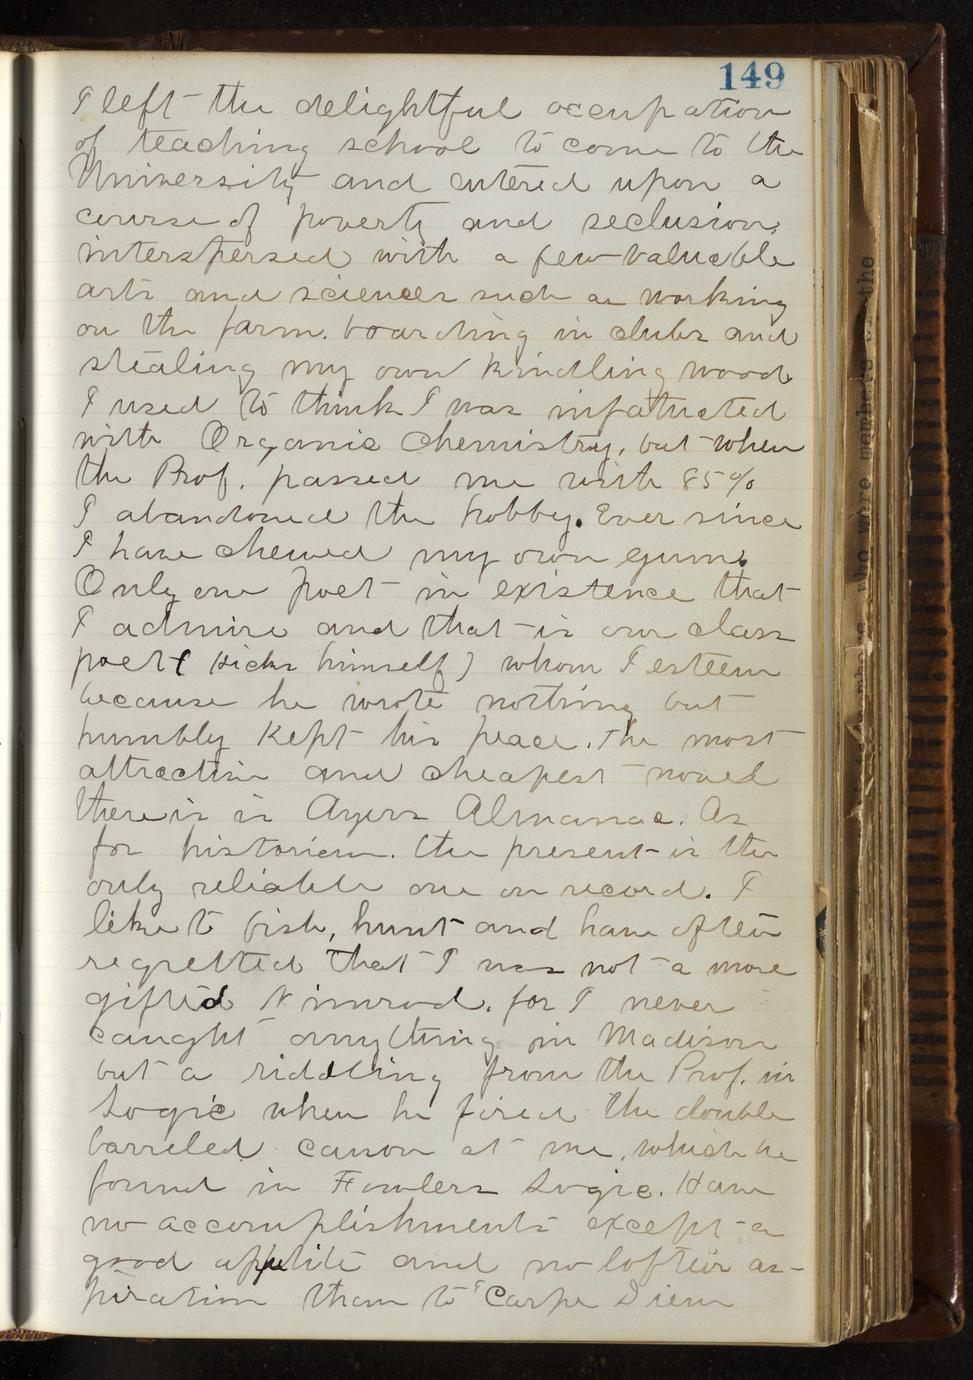 149
I left the delightful occupation
of teaching school to come to the
University and entered upon a
course of poverty and seclusion,
interspersed with a few valuable
arts and sciences such as working
on the farm. boarding in clubs and
stealing my own kindling wood
I used to think I was infatuated
with Organic Chemistry, but when
the Prof. passed me with 85%
I abandoned the hobby. Ever since
I have chewed my own gum.
Only one poet in existence that
I admire and that is our class
poet ( himself) whom I esteem
because he wrote nothing but
humbly kept his peace. The most
attractive and cheapest novel
there is is Ayers Almanac. As
for historian. the present is the
only reliable one on record. I
like to fish, hunt and have often
regretted that I was not a more
gifted Nimrod. for I never
caught anything in Madison
but a riddling from the Prof. in
Logic when he fired the double
barreled canon at me, which he
found in Fowlers Logic. Have
no accomplishments except a
good appetite and no loftier as-
piration than to "Carpe Diem
who were members the